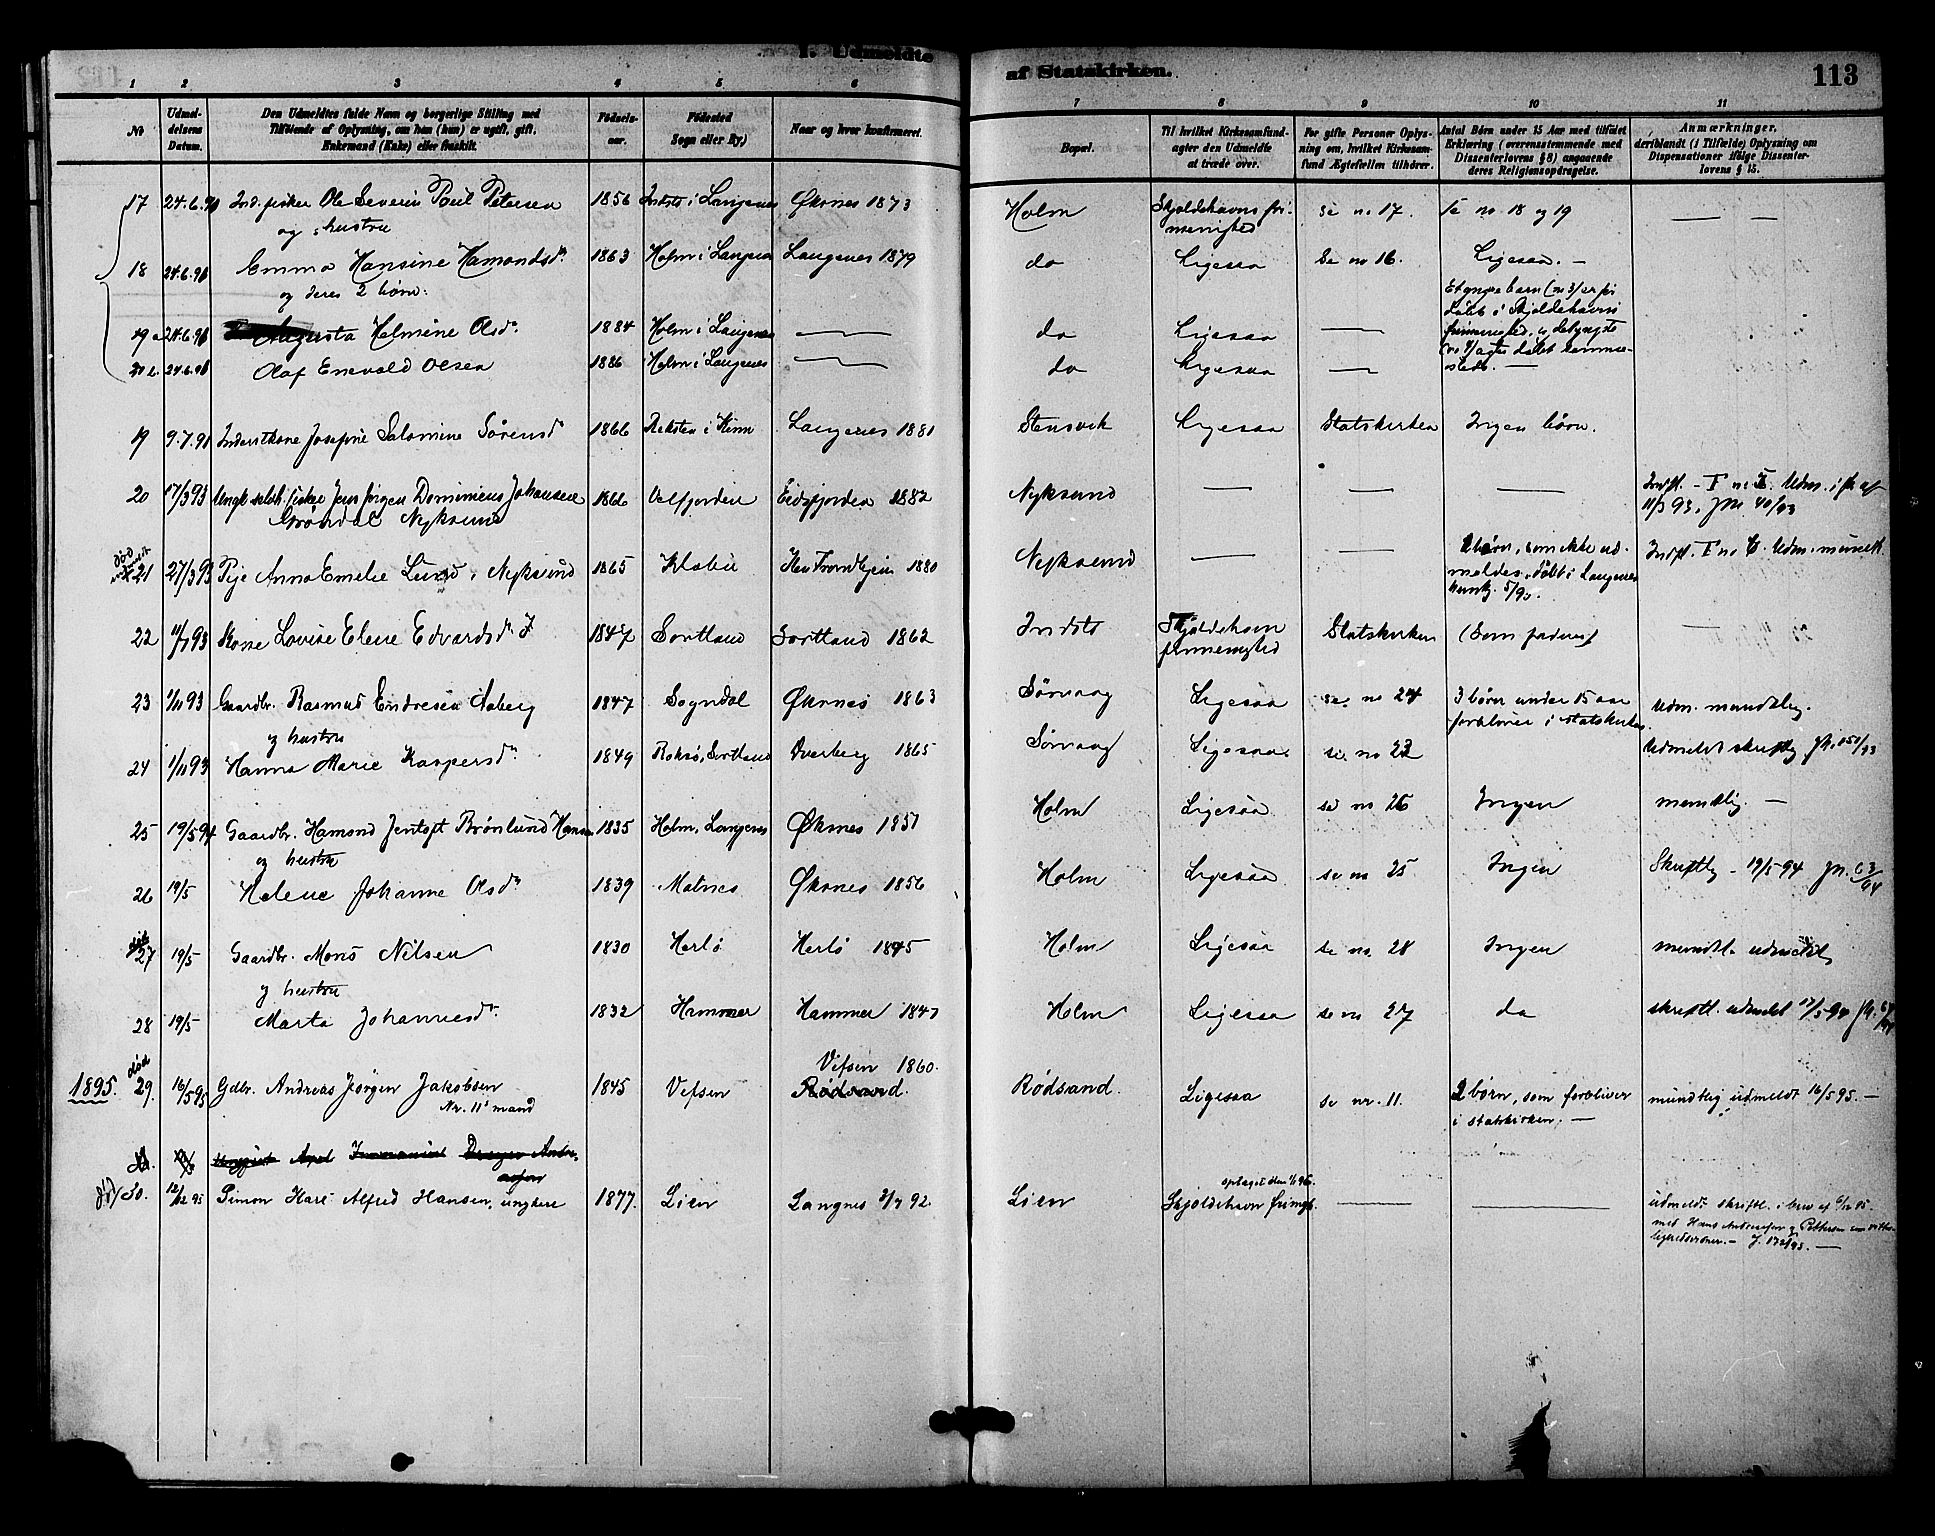 I. Udmeldte af Statskirken. 113
1 2 3 4 5 6 7 8 9 10 11
No Udmeldelsens Datum. Den Udmeldtes fulde Navn og borgerlige Stilling med Tilföiende af Oplysning, om han (hun) er ugift, gift, Enkemand (Enke) eller fraskilt. Födselsaar. Födested Sogn eller By) Naar og hvor konfirmeret. Bopæl. Til hvilket Kirkesamfund agter den Udmeldte at træde over. For gifte Personer Oplysning om, hvilket Kirkesamfund Ægtefællen tilhörer. Antal Börn under 15 Aar med tilföiet Erklæring (overensstemmende med Dissenterlovens § 8) angaaende deres Religionsopdragelse. Anmærkninger, deriblandt (i Tilfælde) Oplysning om Dispensationer ifölge Dissenterlovens § 15.
17 24.6.91 Ind. fisker Ole Severin Poul Petersen 1856 i Langenes Øksnes 1873 Holm Skjoldehavns frimenighed se no 17. Se no 18 og 19 — —
og hustru
18 24.6.91 Emma Hansine Hamondsdr. 1863 Holm i Langenes Langenes 1879 do Ligesaa Se no 16. Ligesaa. —
og deres 2 børn:
Et yngre barn (no 3) er
døbt i Skjoldehavns
19 a 24.6.91 Augusta Holmine Olsdr. 1884 Holm i Langenes — do Ligesaa — frimenighed, og det yngste
20 b. 24.6.91 Olaf Enevold Olsen 1886 Holm i Langenes — do Ligesaa — (no 4) agtes døbt sammesteds. —
19 9.7.91 Inderstkone Josefine Salomine Sørensdr 1866 Reksten i Kinn Langenes 1881 Stensvik Ligesaa Statskirken Ingen børn.
20 17/3 93 Ungk. fisker Jens Jørgen Dominicus Johansen 1866 Velfjorden Eidsfjorden 1882 Nyksund — — — Indfl. - I no Udm. i
Grøndal Nyksund 11/3 93. Jn. 40/93
død
21 27/3 93 Pige Anna Emelie Lund, Nyksund 1865 Klæbu Trondhjem 1880 Nyksund — — børn, som ikke udmeldes, døbt i Langenes Indfl. I no Udm. mundtl.
22 93 Kone Lovise Elene Edvardsdr 1847 Sortland Sortland 1862 Indsto Skjoldehavn frimenighed Statskirken (Som faderen) —
23 1/11 93 Gaardbr. Rasmus Endresen Aaberg 1847 Sogndal Øksnes 1863 Sørvaag Ligesaa se no 24 3 børn under 15 aar forbliver i statskirken Udm. mundtlig.
og hustru
24 1/11 93 Hanna Marie Kaspersdr 1849 Roksø, Sortland Dverberg 1865 Sørvaag Ligesaa se no 23 Udmeldt skriftlig
25 19/5 94 Gaardbr. Hamond Jentoft Brønlund Hansen 1835 Holm, Langenes Øksnes 1851 Holm Ligesaa se no 26 Ingen mundtlig. —
og hustru
26 19/5 Helene Johanne Olsdr 1839 Malnes Øksnes 1856 Holm Ligesaa se no 25 Ingen Skriftlig - 19/5-94 Jn. 63/94
død
27 19/5 Gaardbr. Mons Nilsen 1830 Herlö Herlö 1845 Holm Ligesaa se no. 28 Ingen mundtl. udmeldt
og hustru
28 19/5 Marta Johannesdr. 1832 Hammer Hammer 1847 Holm Ligesaa se no 27 do skriftl. udmeldt
død
Vefsen 1860.
1895. 29. 16/5 95 Gdbr. Andreas Jørgen Jakobsen 1845 Vefsen Rødsand. Rødsand. Ligesaa se nr. 11. 2 børn, som forbliver mundtlig udmeldt 16/5 95. —
Nr. 11's mand i statskirken. —
Axel Immanuel
optaget den 96.
død 30. 12/12 95 Simon Karl Alfred Hansen, ungkar 1877. Lien Langnes 92. Lien Skjoldehavn frimgh. — — udmeldt skriftl. i brev af 6/12 95.
med Hans Andreassen og Pettersen som vitterlighedsvidner. —